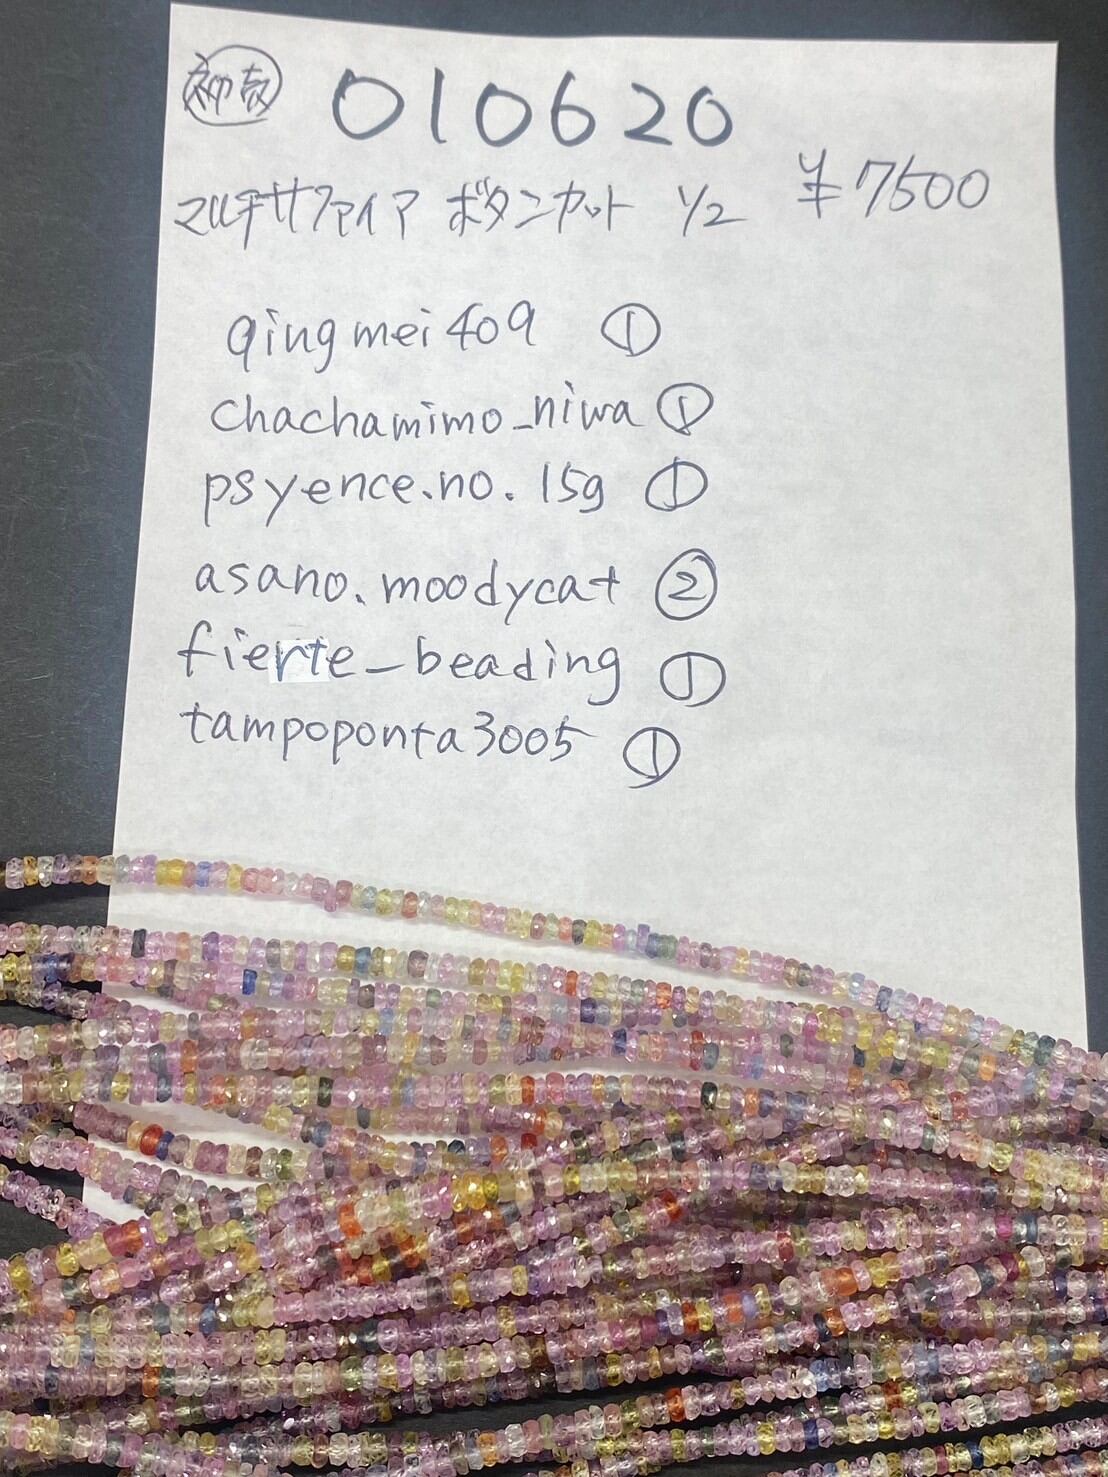 010620
マルチサファイア ボタンカット 1/2 ¥7500
qingmei409 ①
chachamimo_niwa ①
psyence.no.15g ①
asano.moodycat ②
fierte_beading ①
tampoponta3005 ①